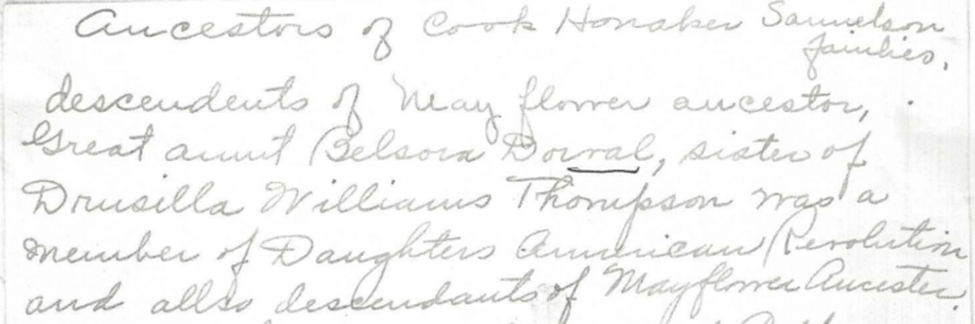 Ancestors of Cook Honaker Samuelson
families.
descendents of May flower ancestor,
Great aunt Belsora Dorval, sister of
Drusilla Williams Thompson was a
member of Daughters American Revolution
and allso descendants of Mayflower Ancester.